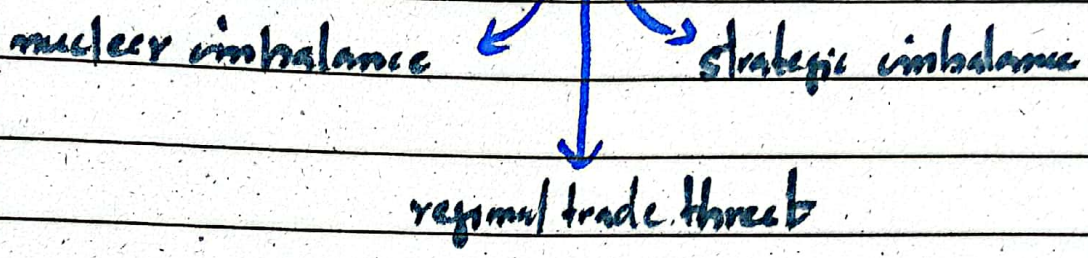 nuclear imbalance strategic imbalance
regional trade threat